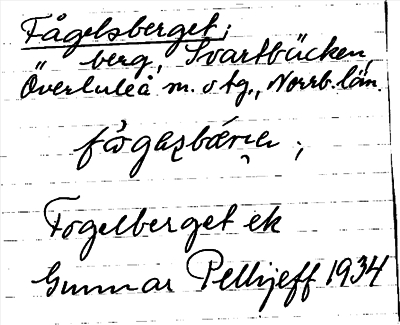 Fågelsberget;
berg, Svartbäcken,
Överluleå m. o tg., Norrb. län.
Fogelberget ek
Gunnar Pellijeff 1934